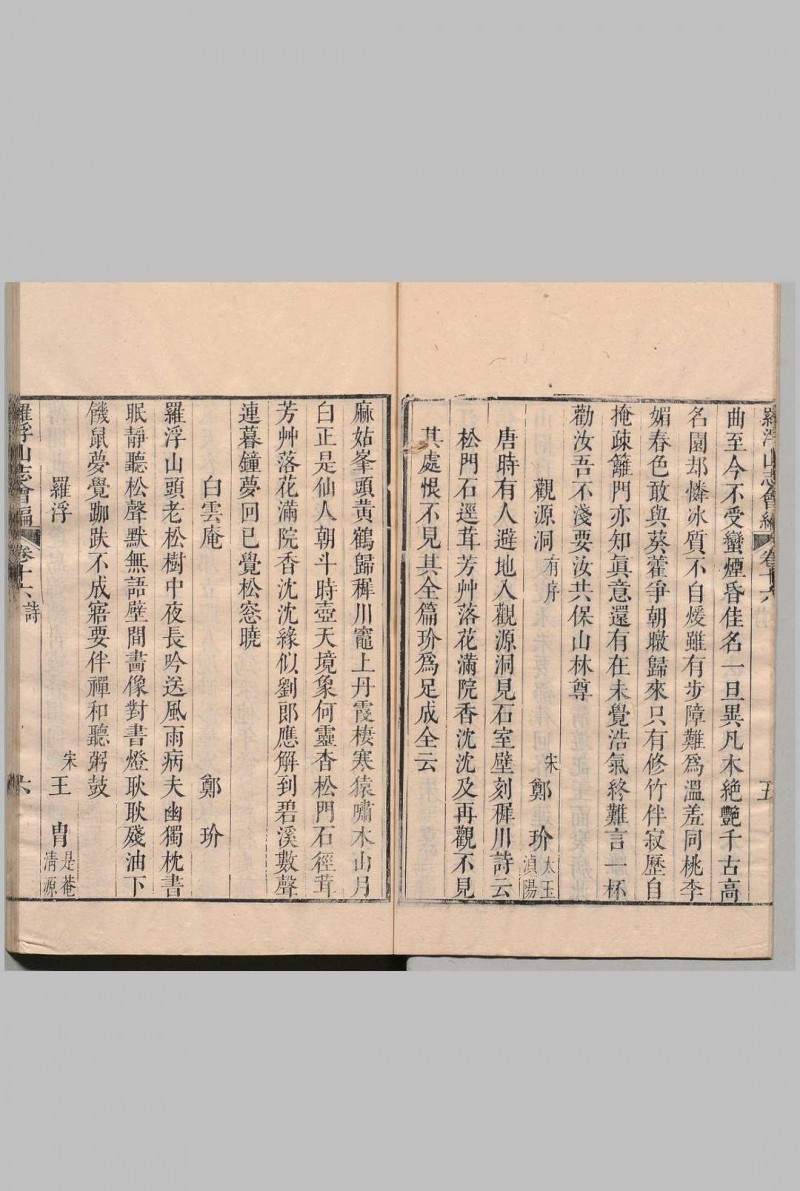 羅浮山志會編 卷十六 五
曲至今不受蠻煙昏佳名一旦異凡木絶艷千古高
名園却憐冰質不自煖雖有步障難爲溫羞同桃李
媚春色敢與葵藿爭朝暾歸來只有修竹伴寂歷自
掩疎籬門亦知眞意還有在未覺浩氣終難言一杯
勸汝吾不淺要汝共保山林尊
觀源洞 有序 宋 鄭玠 太玉 滇陽
唐時有人避地入觀源洞見石室壁刻稺川詩云
松門石逕茸芳艸落花滿院香沈沈及再觀不見
其處恨不見其全篇玠爲足成全云
麻姑峯頭黃鶴歸稺川竈上丹霞棲寒猿嘯木山月
白正是仙人朝斗時壺天境象何靈杳松門石徑茸
芳艸落花滿院香沈沈緣似劉郞應解到碧溪數聲
連暮鐘夢回已覺松窓曉
白雲庵 鄭玠
羅浮山頭老松樹中夜長吟送風雨病夫幽獨枕書
眠靜聽松聲默無語壁間畵像對書燈耿耿殘油下
饑鼠夢覺跏趺不成寤要伴禪和聽粥鼓
羅浮 宋 王胄 是菴 清源
羅浮山志會編 卷十六 詩 六